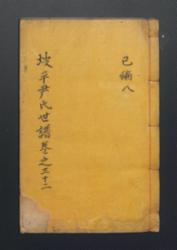 己編八
坡平尹氏世譜卷之三十二